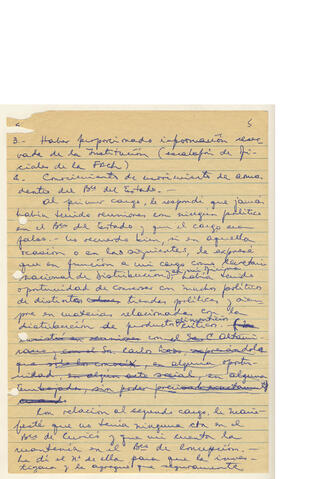 5
3.- Haber proporcionado información reser-
vada de la Institución (escalafón de Ofi-
ciales de la FACh)
4.- Conocimiento de movimiento de
dentes del Bco del Estado.-
Al primer cargo, le respondí que jamás
había tenido reuniones con ningún político
en el Bco del Estado, y que el cargo era
falso.- No recuerdo bien, si en aquella
ocasión o en las siguientes, le expresé
que en función a mi cargo como Secretario
Nacional de Distribución, había tenido
oportunidad de conversar con muchos políticos
de distintas tiendas políticas, y siem-
pre en materias relacionadas con la
distribución de productos alimenticios
en reuniones con el Sr. C. Altami-
rano, Sr. Carlos
en alguna oportu-
nidad en algún acto social, en alguna
embajada, sin poder precisar exactamente
Con relación al segundo cargo, le mani-
festé que no tenía ninguna cta en el
Bco de Curicó y que mi cuenta la
mantenía en el Bco de Concepción.-
Le di el Nº de ella para que la inves-
tigara y le agregué que seguramente